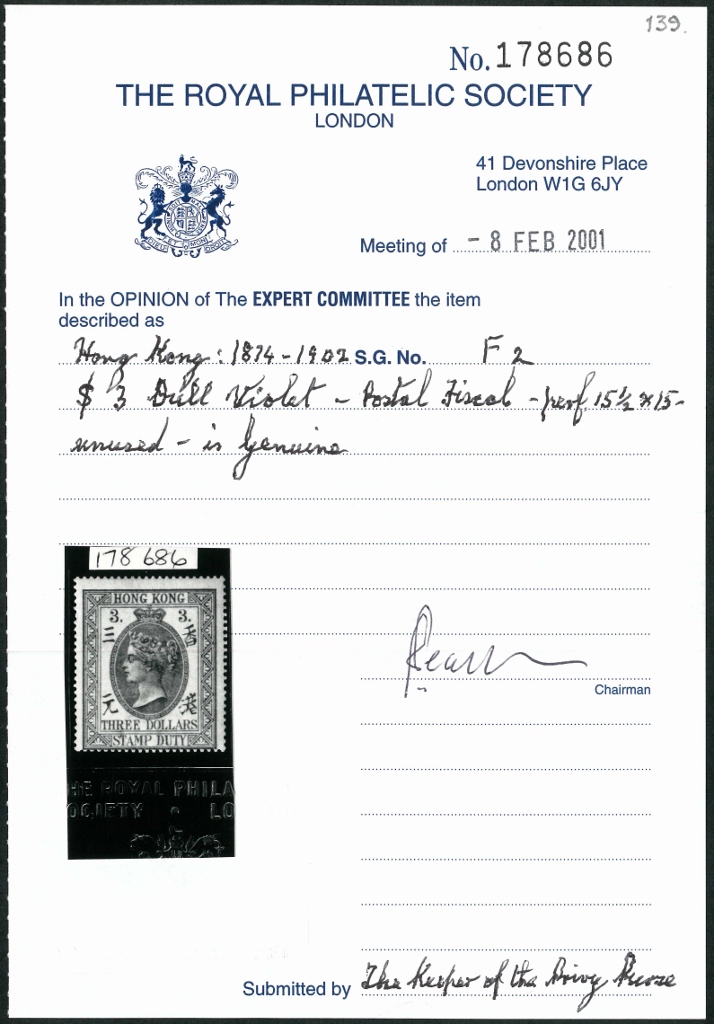 139.
No. 178686
THE ROYAL PHILATELIC SOCIETY
LONDON
41 Devonshire Place
London W1G 6JY
Meeting of - 8 FEB 2001
In the OPINION of The EXPERT COMMITTEE the item
described as
Hong Kong: 1874-1902 S.G. No. F 2
$ 3 Dull Violet - Postal Fiscal - perf 15½ x 15 -
unused - is Genuine
178 686
HONG KONG
3. 3.
三 香
元 港
THREE DOLLARS
STAMP DUTY
HE ROYAL PHILA
OCIETY • LO
Chairman
Submitted by The Keeper of the Privy Purse